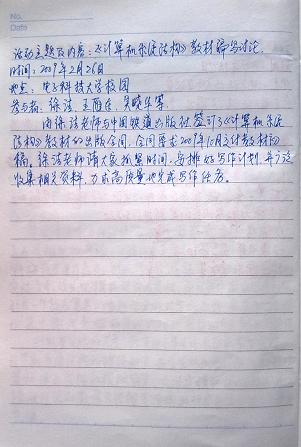 No.
Date
活动主题及内容：《计算机系统结构》教材编写讨论
时间：2009年2月26日
地点：电子科技大学校园
参与者：徐洁、王雁东、吴晓华等
由徐洁老师与中国铁道出版社签订了《计算机系统
结构》教材的出版合同，合同要求2009年10月交付教材初
稿。徐洁老师请大家抓紧时间，安排好写作计划，并广泛
收集相关资料，力求高质量地完成写作任务。